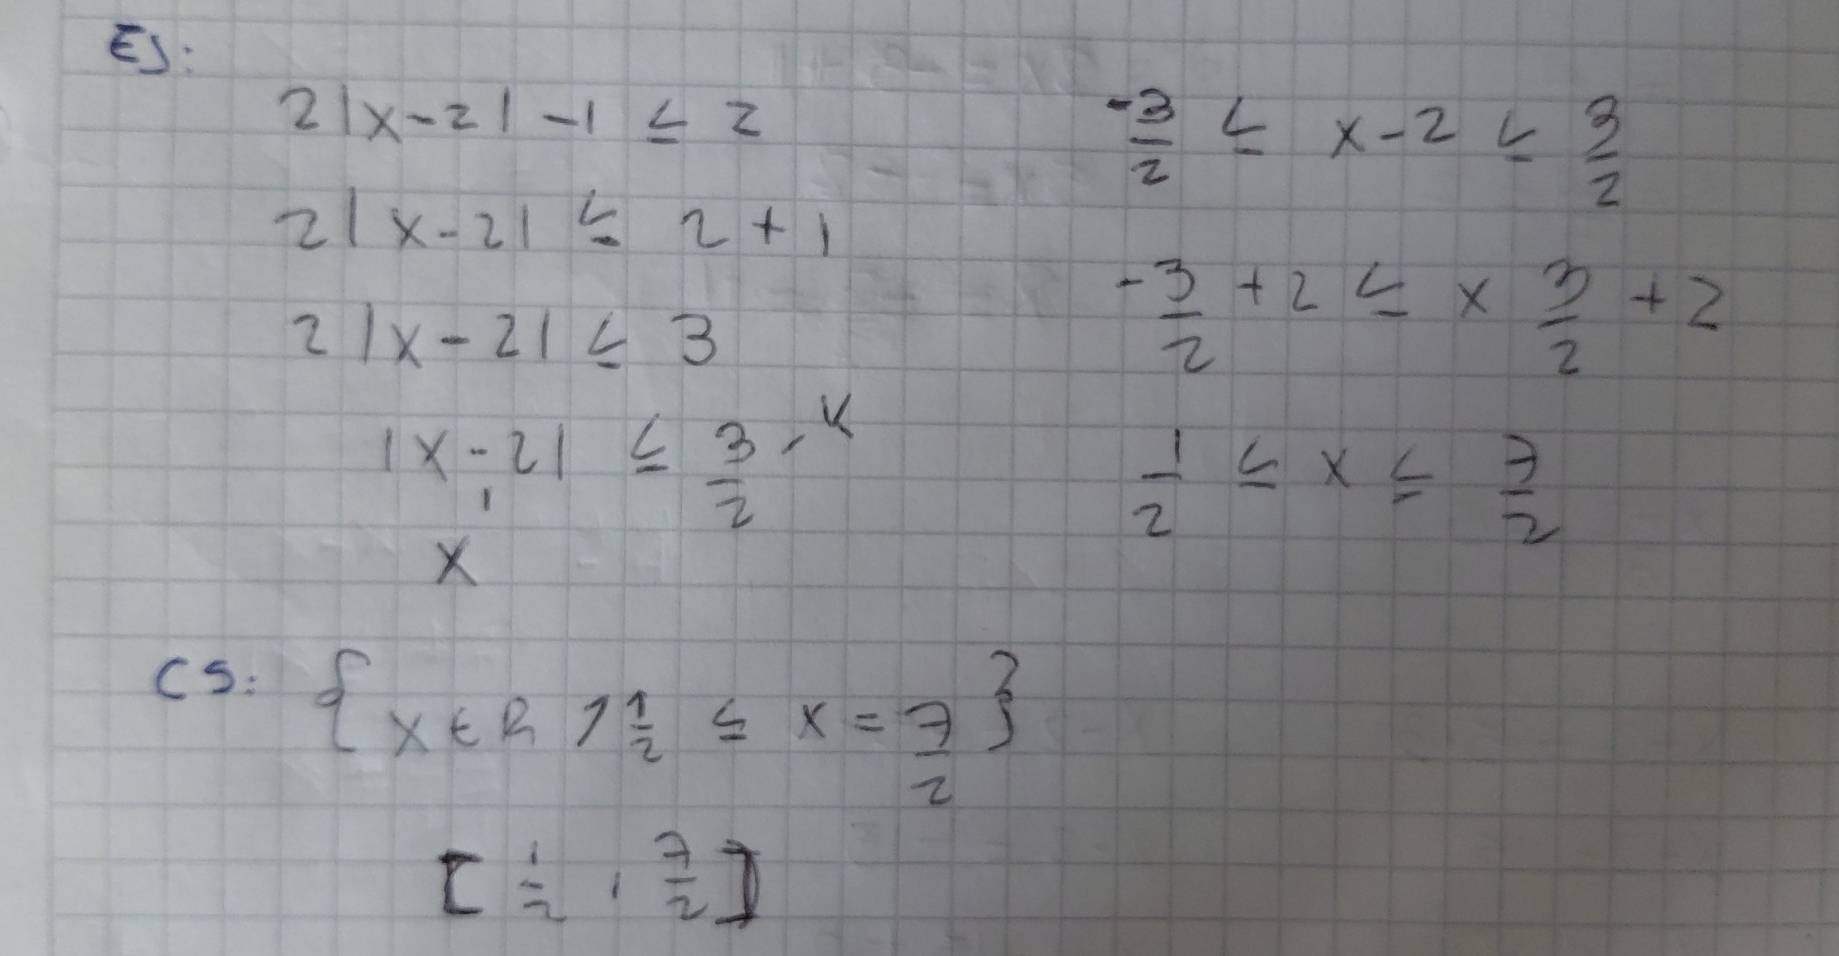 EJ:
2|x-2| -1 ≤ 2
2|x-2| ≤ 2 + 1
2|x-2| ≤ 3
|x-2| ≤ 3/2 - K
x
-3/2 ≤ x-2 ≤ 3/2
-3/2 +2 ≤ x 3/2 +2
1/2 ≤ x ≤ 7/2
CS: { x ∈ R / 1/2 ≤ x = 7/2 }
[ 1/2 , 7/2 ]